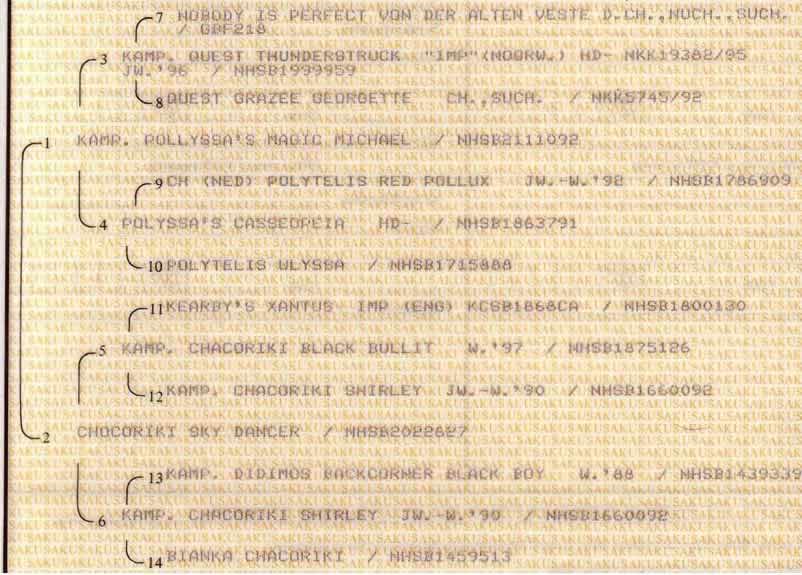 7 NOBODY IS PERFECT VON DER ALTEN VESTE D.CH.,NUCH.,SUCH.
/ GBF218
3 KAMP. QUEST THUNDERSTRUCK "IMP"(NOORW.) HD- NKK19382/95
JW.'96 / NHSB1999959
8 QUEST GRAZEE GEORGETTE CH.,SUCH. / NKK5745/92
1 KAMP. POLLYSSA'S MAGIC MICHAEL / NHSB2111092
9 CH (NED) POLYTELIS RED POLLUX JW.-W.'92 / NHSB1786909
4 POLYSSA'S CASSEOPEIA HD- / NHSB1863791
10 POLYTELIS ULYSSA / NHSB1715888
11 KEARBY'S XANTUS IMP (ENG) KCSB1868CA / NHSB1800130
5 KAMP. CHACORIKI BLACK BULLIT W.'97 / NHSB1875126
12 KAMP. CHACORIKI SHIRLEY JW.-W.'90 / NHSB1660092
2 CHOCORIKI SKY DANCER / NHSB2022627
13 KAMP. DIDIMOS BACKCORNER BLACK BOY W.'88 / NHSB1439339
6 KAMP. CHACORIKI SHIRLEY JW.-W.'90 / NHSB1660092
14 BIANKA CHACORIKI / NHSB1459513